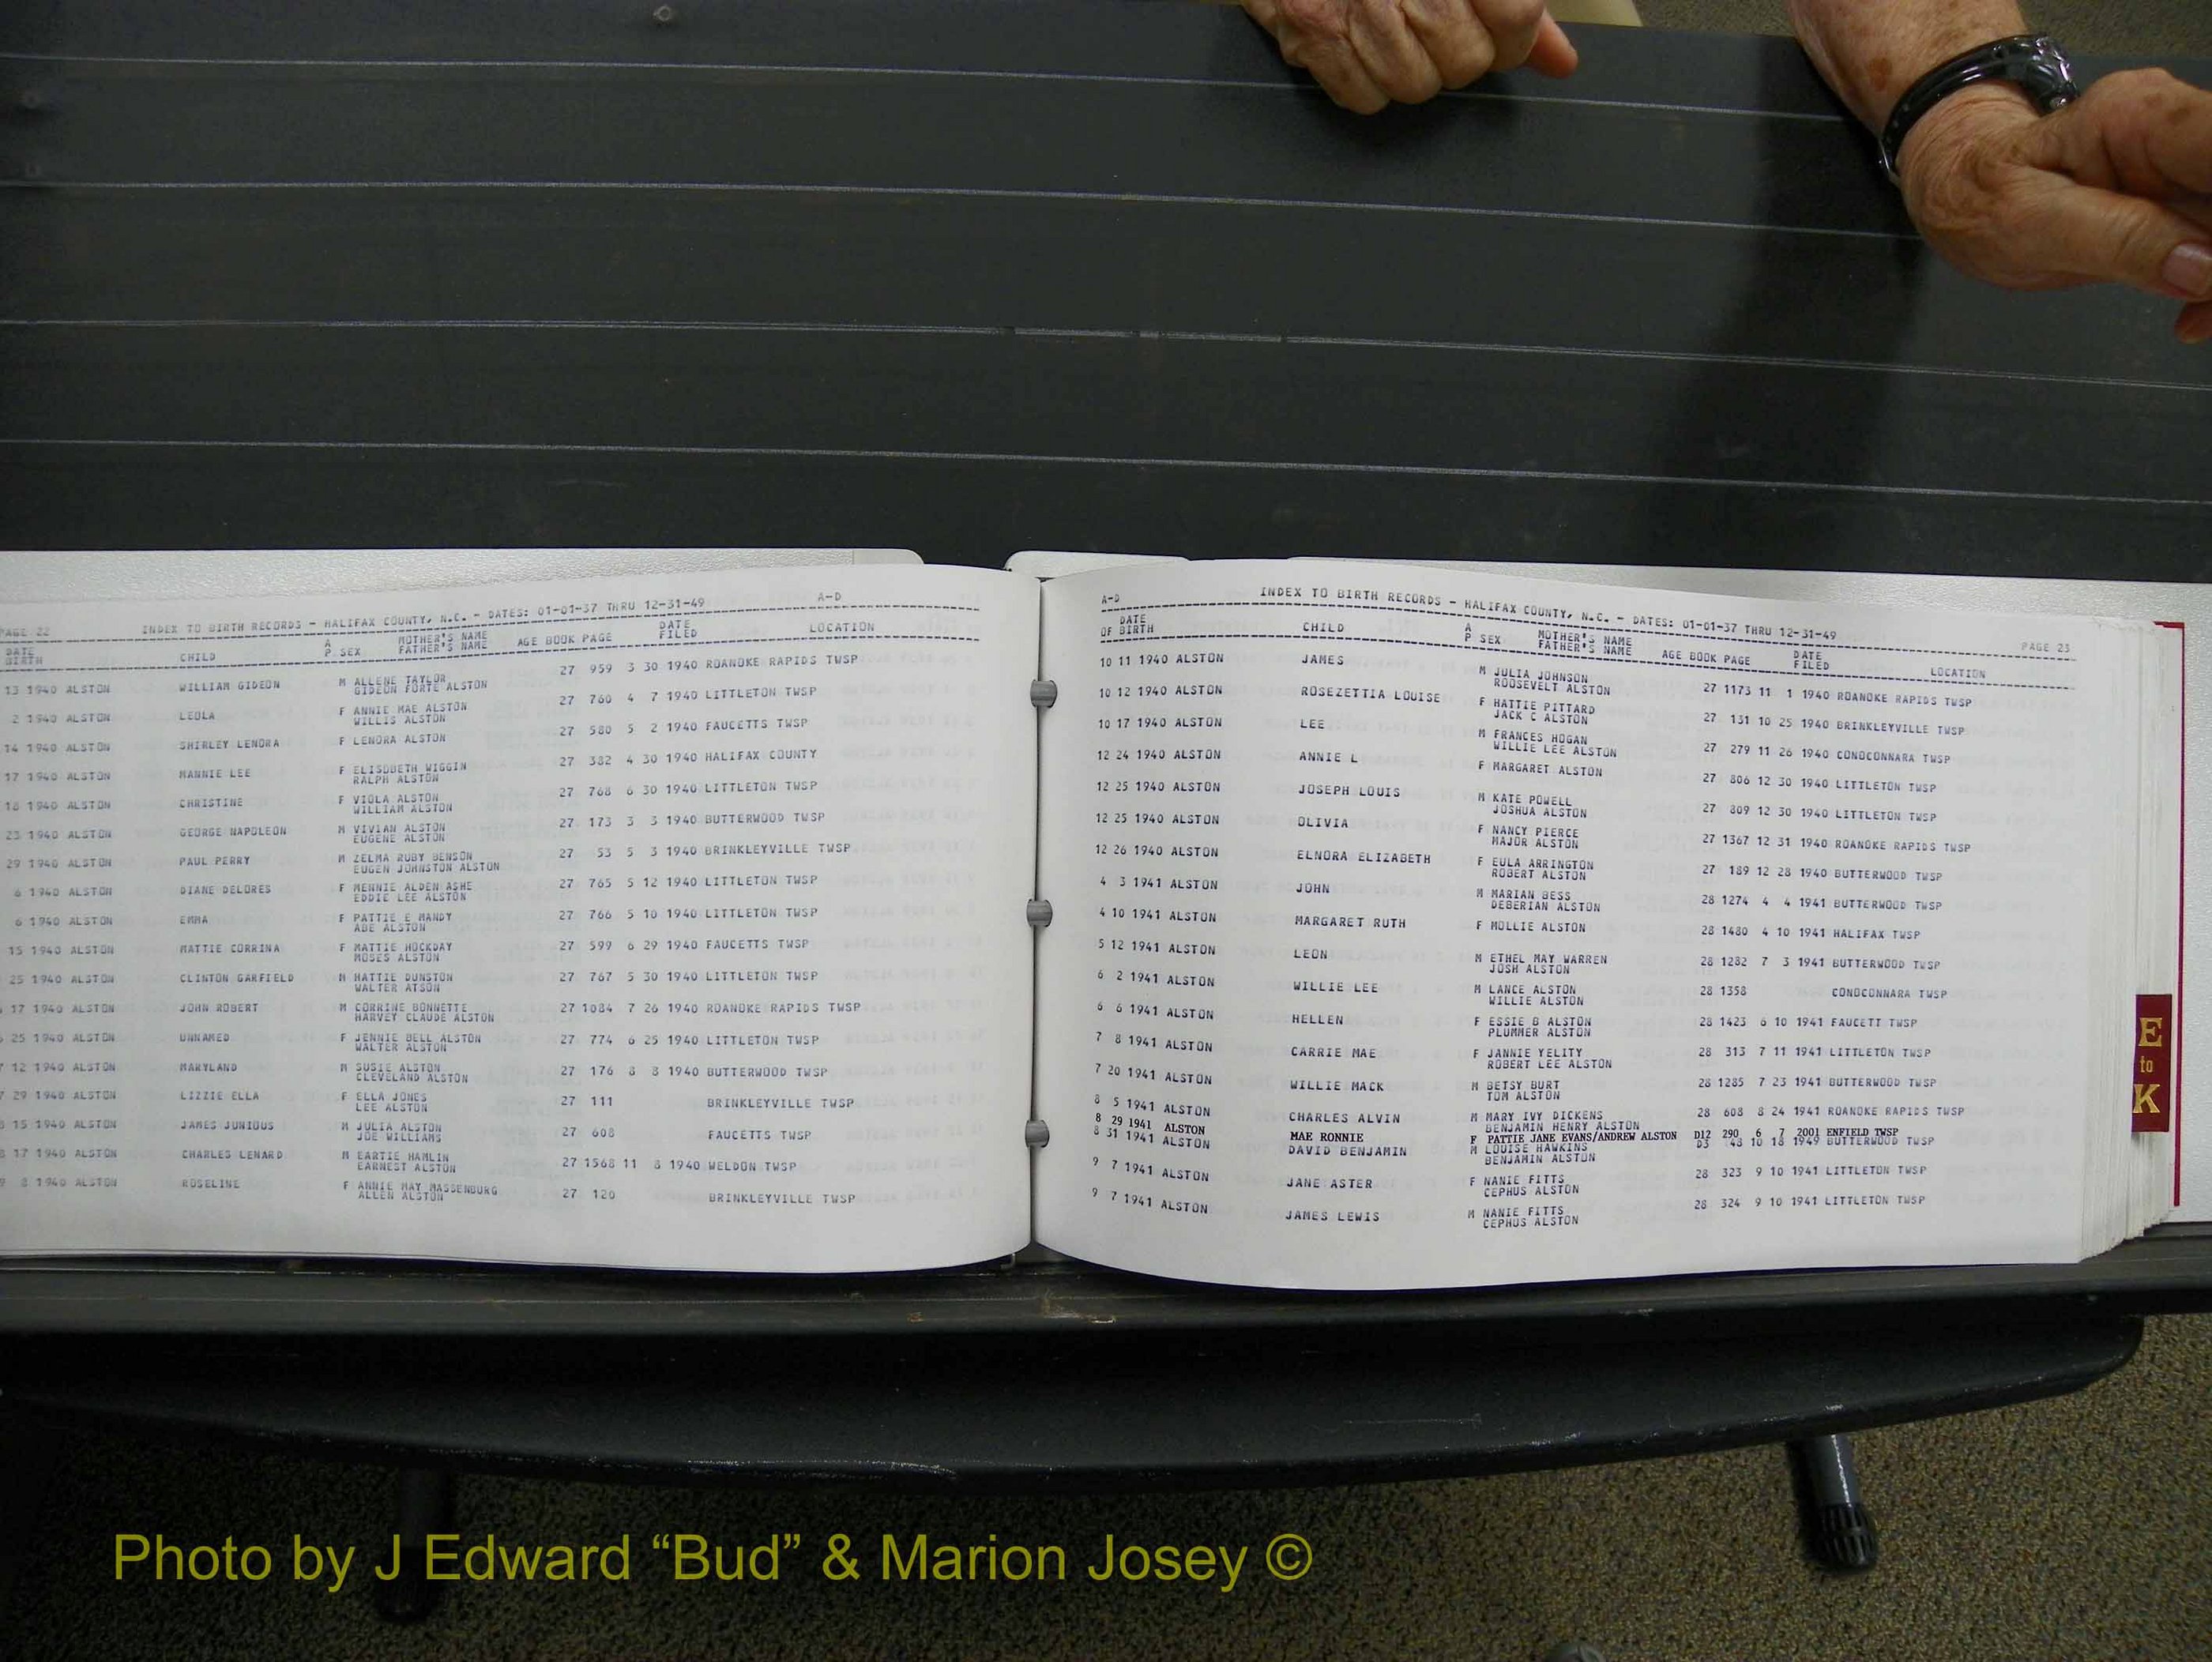 PAGE 22 INDEX TO BIRTH RECORDS - HALIFAX COUNTY, N.C. - DATES: 01-01-37 THRU 12-31-49 A-D
DATE BIRTH CHILD A P SEX MOTHER'S NAME FATHER'S NAME AGE BOOK PAGE DATE FILED LOCATION
13 1940 ALSTON WILLIAM GIDEON M ALLENE TAYLOR 27 959 3 30 1940 ROANOKE RAPIDS TWSP
GIDEON FORTE ALSTON
2 1940 ALSTON LEOLA F ANNIE MAE ALSTON 27 760 4 7 1940 LITTLETON TWSP
WILLIS ALSTON
14 1940 ALSTON SHIRLEY LENORA F LENORA ALSTON 27 580 5 2 1940 FAUCETTS TWSP
17 1940 ALSTON MANNIE LEE F ELISDBETH WIGGIN 27 382 4 30 1940 HALIFAX COUNTY
RALPH ALSTON
18 1940 ALSTON CHRISTINE F VIOLA ALSTON 27 768 6 30 1940 LITTLETON TWSP
WILLIAM ALSTON
23 1940 ALSTON GEORGE NAPOLEON M VIVIAN ALSTON 27 173 3 3 1940 BUTTERWOOD TWSP
EUGENE ALSTON
29 1940 ALSTON PAUL PERRY M ZELMA RUBY BENSON 27 53 5 3 1940 BRINKLEYVILLE TWSP
EUGEN JOHNSTON ALSTON
6 1940 ALSTON DIANE DELORES F MENNIE ALDEN ASHE 27 765 5 12 1940 LITTLETON TWSP
EDDIE LEE ALSTON
6 1940 ALSTON EMMA F PATTIE E MANDY 27 766 5 10 1940 LITTLETON TWSP
ABE ALSTON
15 1940 ALSTON MATTIE CORRINA F MATTIE HOCKDAY 27 599 6 29 1940 FAUCETTS TWSP
MOSES ALSTON
25 1940 ALSTON CLINTON GARFIELD M HATTIE DUNSTON 27 767 5 30 1940 LITTLETON TWSP
WALTER ATSON
17 1940 ALSTON JOHN ROBERT M CORRINE BONNETTE 27 1084 7 26 1940 ROANOKE RAPIDS TWSP
HARVEY CLAUDE ALSTON
25 1940 ALSTON UNNAMED F JENNIE BELL ALSTON 27 774 6 25 1940 LITTLETON TWSP
WALTER ALSTON
7 12 1940 ALSTON MARYLAND M SUSIE ALSTON 27 176 8 8 1940 BUTTERWOOD TWSP
CLEVELAND ALSTON
7 29 1940 ALSTON LIZZIE ELLA F ELLA JONES 27 111 BRINKLEYVILLE TWSP
LEE ALSTON
8 15 1940 ALSTON JAMES JUNIOUS M JULIA ALSTON 27 608 FAUCETTS TWSP
JOE WILLIAMS
8 17 1940 ALSTON CHARLES LENARD M EARTIE HAMLIN 27 1568 11 8 1940 WELDON TWSP
EARNEST ALSTON
9 8 1940 ALSTON ROSELINE F ANNIE MAY MASSENBURG 27 120 BRINKLEYVILLE TWSP
ALLEN ALSTON
A-D INDEX TO BIRTH RECORDS - HALIFAX COUNTY, N.C. - DATES: 01-01-37 THRU 12-31-49 PAGE 23
DATE OF BIRTH CHILD A P SEX MOTHER'S NAME FATHER'S NAME AGE BOOK PAGE DATE FILED LOCATION
10 11 1940 ALSTON JAMES M JULIA JOHNSON 27 1173 11 1 1940 ROANOKE RAPIDS TWSP
ROOSEVELT ALSTON
10 12 1940 ALSTON ROSEZETTIA LOUISE F HATTIE PITTARD 27 131 10 25 1940 BRINKLEYVILLE TWSP
JACK C ALSTON
10 17 1940 ALSTON LEE M FRANCES HOGAN 27 279 11 26 1940 CONOCONNARA TWSP
WILLIE LEE ALSTON
12 24 1940 ALSTON ANNIE L F MARGARET ALSTON 27 806 12 30 1940 LITTLETON TWSP
12 25 1940 ALSTON JOSEPH LOUIS M KATE POWELL 27 809 12 30 1940 LITTLETON TWSP
JOSHUA ALSTON
12 25 1940 ALSTON OLIVIA F NANCY PIERCE 27 1367 12 31 1940 ROANOKE RAPIDS TWSP
MAJOR ALSTON
12 26 1940 ALSTON ELNORA ELIZABETH F EULA ARRINGTON 27 189 12 28 1940 BUTTERWOOD TWSP
ROBERT ALSTON
4 3 1941 ALSTON JOHN M MARIAN BESS 28 1274 4 4 1941 BUTTERWOOD TWSP
DEBERIAN ALSTON
4 10 1941 ALSTON MARGARET RUTH F MOLLIE ALSTON 28 1480 4 10 1941 HALIFAX TWSP
5 12 1941 ALSTON LEON M ETHEL MAY WARREN 28 1282 7 3 1941 BUTTERWOOD TWSP
JOSH ALSTON
6 2 1941 ALSTON WILLIE LEE M LANCE ALSTON 28 1358 CONOCONNARA TWSP
WILLIE ALSTON
6 6 1941 ALSTON HELLEN F ESSIE B ALSTON 28 1423 6 10 1941 FAUCETT TWSP
PLUMMER ALSTON
7 8 1941 ALSTON CARRIE MAE F JANNIE YELITY 28 313 7 11 1941 LITTLETON TWSP
ROBERT LEE ALSTON
7 20 1941 ALSTON WILLIE MACK M BETSY BURT 28 1285 7 23 1941 BUTTERWOOD TWSP
TOM ALSTON
8 5 1941 ALSTON CHARLES ALVIN M MARY IVY DICKENS 28 608 8 24 1941 ROANOKE RAPIDS TWSP
BENJAMIN HENRY ALSTON
8 29 1941 ALSTON MAE RONNIE F PATTIE JANE EVANS/ANDREW ALSTON D12 290 6 7 2001 ENFIELD TWSP
8 31 1941 ALSTON DAVID BENJAMIN M LOUISE HAWKINS D3 48 10 18 1949 BUTTERWOOD TWSP
BENJAMIN ALSTON
9 7 1941 ALSTON JANE ASTER F NANIE FITTS 28 323 9 10 1941 LITTLETON TWSP
CEPHUS ALSTON
9 7 1941 ALSTON JAMES LEWIS M NANIE FITTS 28 324 9 10 1941 LITTLETON TWSP
CEPHUS ALSTON
E
to
K
Photo by J Edward “Bud” & Marion Josey ©